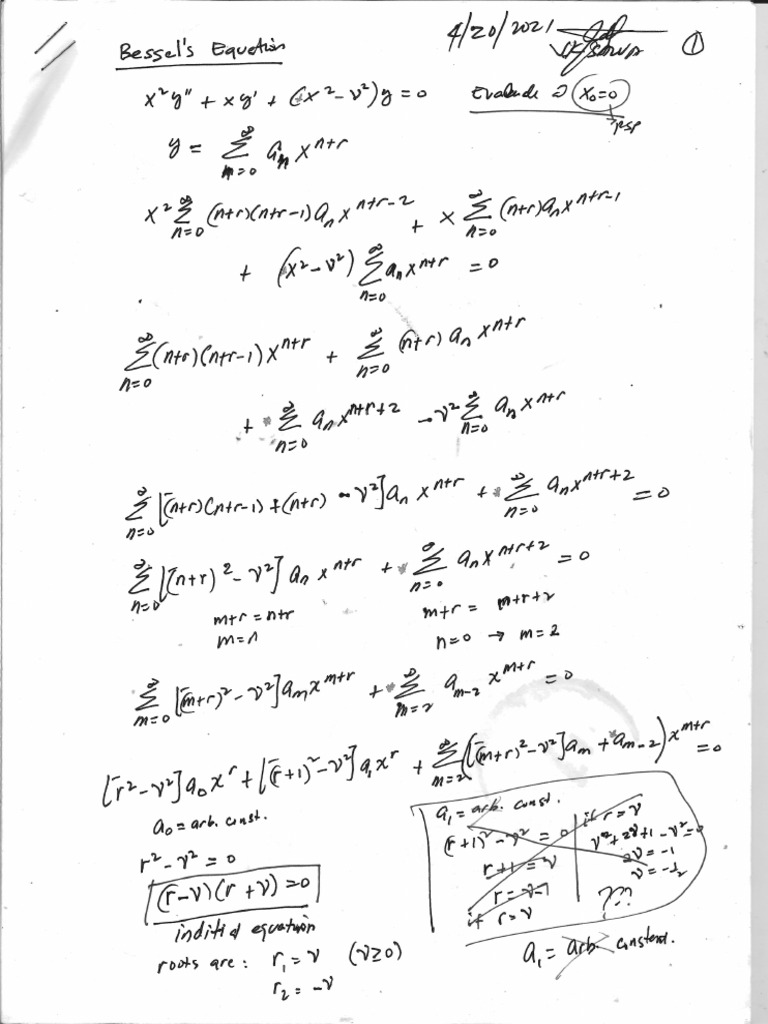 4/20/2021 ①
Bessel's Equation
x²y'' + xy' + (x² - ν²)y = 0 Evaluate @ x₀=0
→ RSP
y = ∑_{n=0}^∞ a_n x^{n+r}
x² ∑_{n=0}^∞ (n+r)(n+r-1) a_n x^{n+r-2} + x ∑_{n=0}^∞ (n+r) a_n x^{n+r-1}
+ (x² - ν²) ∑_{n=0}^∞ a_n x^{n+r} = 0
∑_{n=0}^∞ (n+r)(n+r-1) x^{n+r} + ∑_{n=0}^∞ (n+r) a_n x^{n+r}
+ ∑_{n=0}^∞ a_n x^{n+r+2} - ν² ∑_{n=0}^∞ a_n x^{n+r}
∑_{n=0}^∞ [(n+r)(n+r-1) + (n+r) - ν²] a_n x^{n+r} + ∑_{n=0}^∞ a_n x^{n+r+2} = 0
∑_{n=0}^∞ [(n+r)² - ν²] a_n x^{n+r} + ∑_{n=0}^∞ a_n x^{n+r+2} = 0
m+r = n+r m+r = n+r+2
m=n n=0 → m=2
∑_{m=0}^∞ [(m+r)² - ν²] a_m x^{m+r} + ∑_{m=2}^∞ a_{m-2} x^{m+r} = 0
[r² - ν²] a₀ x^r + [(r+1)² - ν²] a₁ x^r + ∑_{m=2}^∞ ([(m+r)² - ν²] a_m + a_{m-2}) x^{m+r} = 0
a₀ = arb. const.
r² - ν² = 0
(r-ν)(r+ν) = 0
inditial equation
roots are: r₁ = ν (ν≥0)
r₂ = -ν
a₁ = arb. const.
(r+1)² - ν² = 0
r+1 = ν
r = ν-1
if r = ν
if r = ν
ν² + 2ν + 1 - ν² = 0
2ν = -1
ν = -½
???
a₁ = arb. constant.